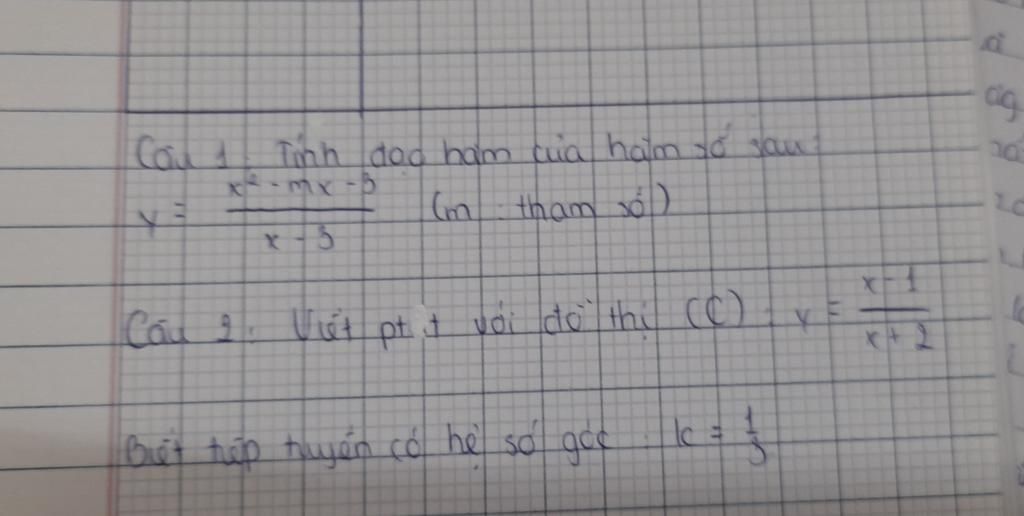 Câu 1: Tính đạo hàm của hàm số sau:
y = (x² - mx - 3)/(x - 3) (m: tham số)
Câu 2: Viết pt t với đồ thị (C): y = (x - 1)/(x + 2)
Biết tiếp tuyến có hệ số góc: k = 1/3